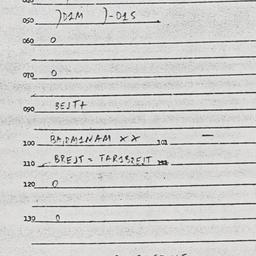 050 )DIM )-DIS
060 0
070 0
090 BEJT+
100 BA,DMINAM XX 101 —
110 BREJT = TARIBREJT
120 0
130 0